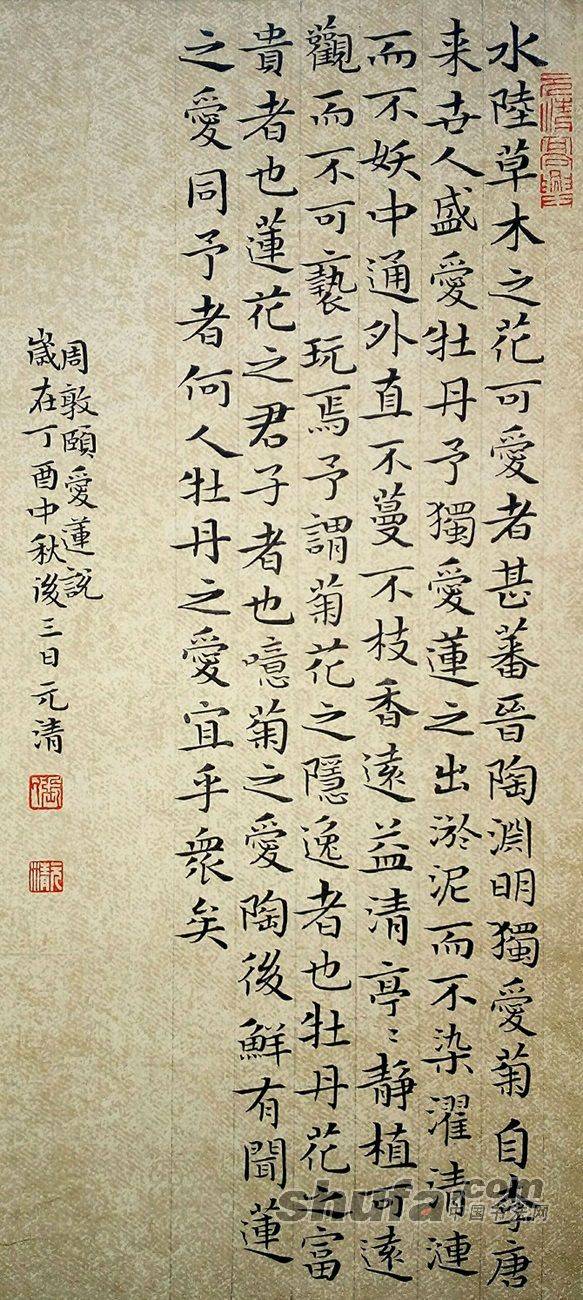 水陸草木之花可愛者甚蕃晉陶淵明獨愛菊自李唐
来世人盛愛牡丹予獨愛蓮之出淤泥而不染濯清漣
而不妖中通外直不蔓不枝香遠益清亭〻静植可遠
觀而不可褻玩焉予謂菊花之隱逸者也牡丹花之富
貴者也蓮花之君子者也噫菊之愛陶後鮮有聞蓮
之愛同予者何人牡丹之愛宜乎衆矣
周敦頤愛蓮説
歲在丁酉中秋後三日元清
元清
shufa.com
中国书法网